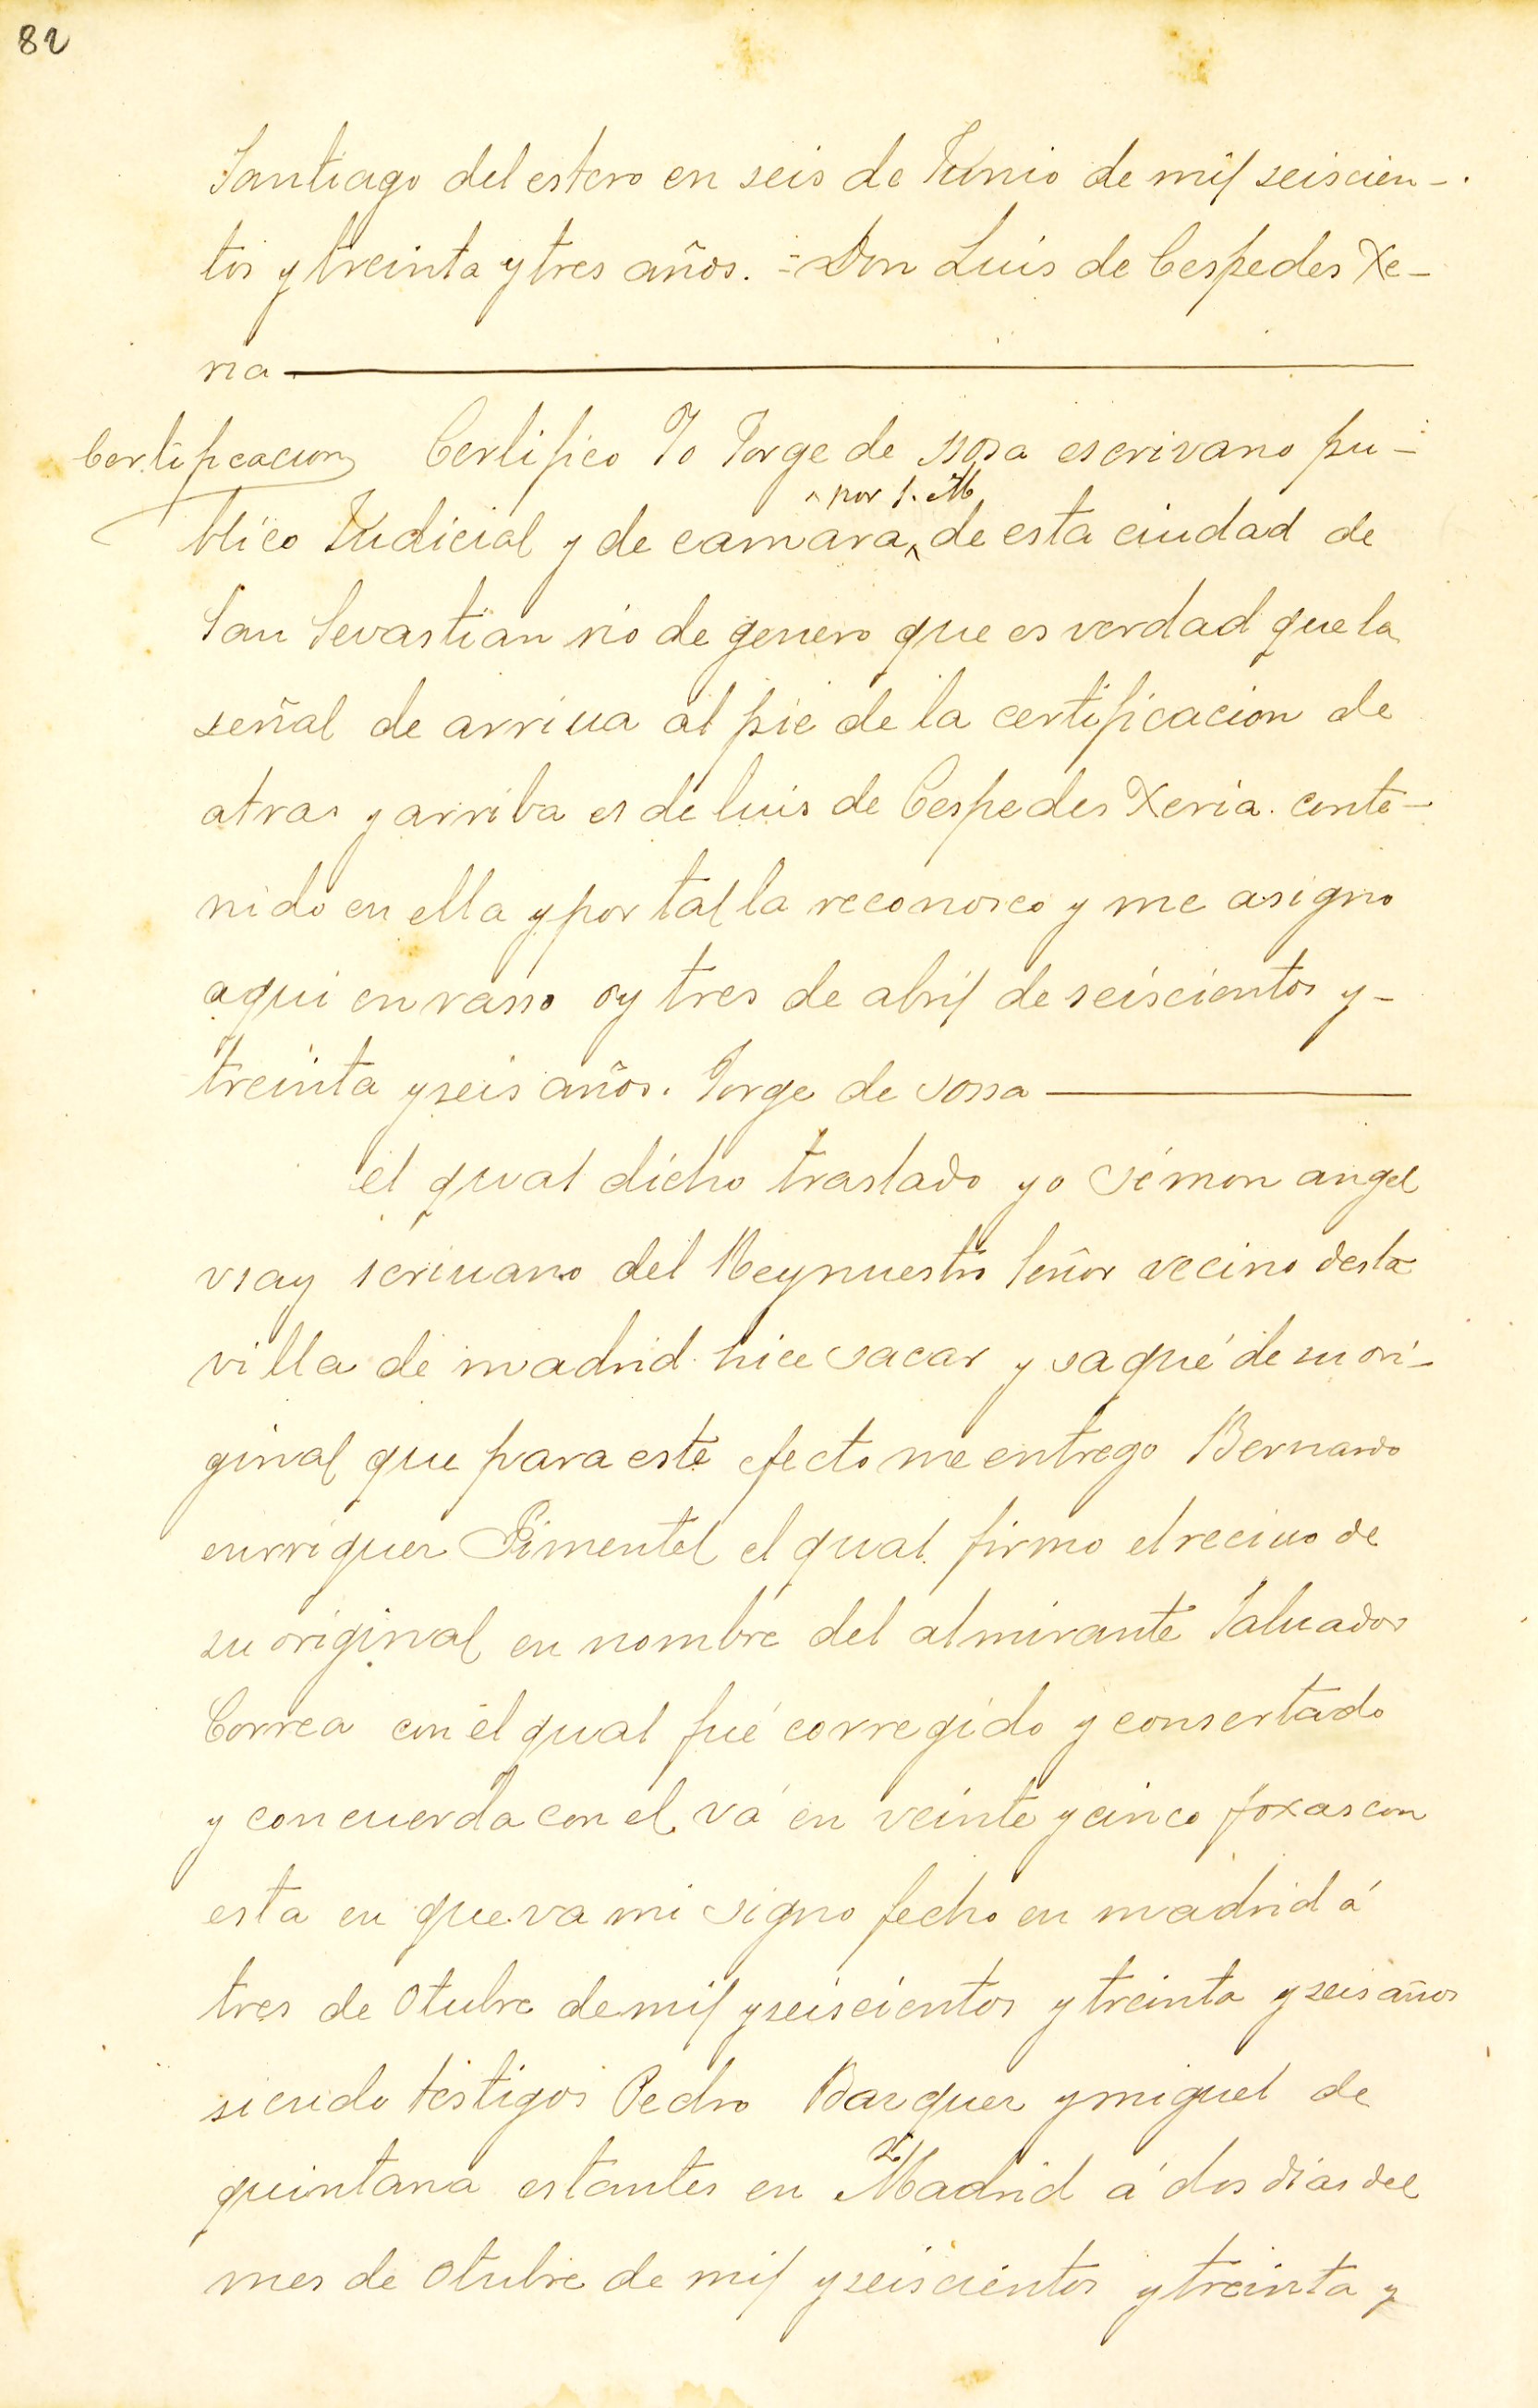 82
Santiago del estero en seis de Junio de mil seiscien-
tos y treinta y tres años. = Don Luis de Cespedes Xe-
ria
Certificacion Certifico Yo Jorge de ssosa escrivano pu-
^ por S. M.
blico Judicial y de camara ^ de esta ciudad de
San Sevastian rio de genero que es verdad que la
señal de arriua al pie de la certificacion de
atras y arriba es de luis de Cespedes Xeria. conte-
nido en ella y por tal la reconosco y me asigno
aqui en rasso oy tres de abril de seiscientos y-
treinta y seis años. Jorge de sossa
el qual dicho traslado yo simon angel
vsay scriuano del Rey nuestro Señor vecino desta
villa de madrid hice sacar y saqué de su ori-
ginal que para este efecto me entrego Bernardo
enrriquez Pimentel el qual firmo el reciuo de
su original en nombre del almirante Saluador
Correa con el qual fué corregido y consertado
y concuerda con el vá en veinte y cinco foxas con
esta en que va mi signo fecho en madrid á
tres de Otubre de mil y seiscientos y treinta y seis años
siendo testigos Pedro Bazquez y miguel de
quintana estantes en Madrid á dos dias del
mes de Otubre de mil y seiscientos y treinta y